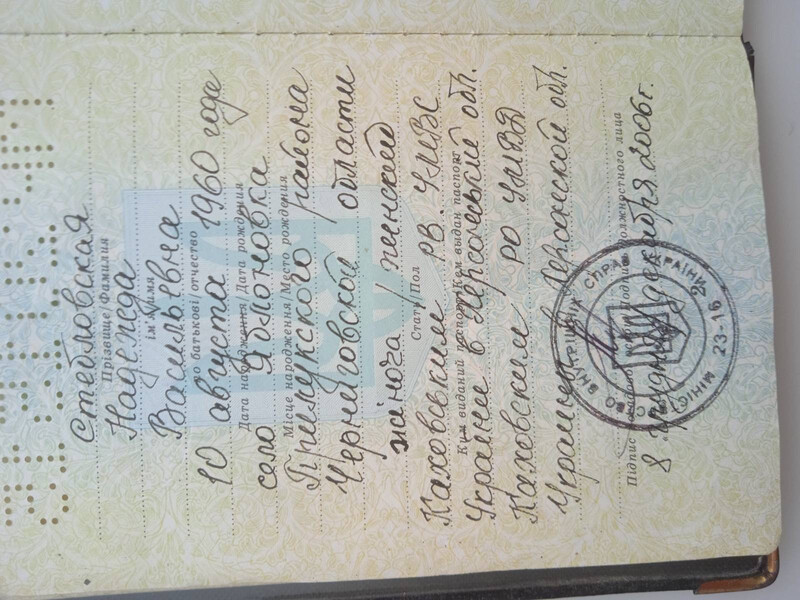 Стебловская
Прізвище/Фамилия
Надежда
ім'я/имя
Васильевна
по батькові/отчество
10 августа 1960 года
Дата народження/Дата рождения
село
Місце народження/Место рождения
Прилукского района
Черниговской области
жіноча/женский
Стать/Пол
Каховським РВ УМВС
Ким виданий паспорт/Кем выдан паспорт
України в Херсонській обл.
Каховским РО УМВД
Украины в Херсонской обл.
Підпис посадової особи/Подпись должностного лица
8 декабря 2006г.
ВНУТРІШНІХ СПРАВ УКРАЇНИ
23-16